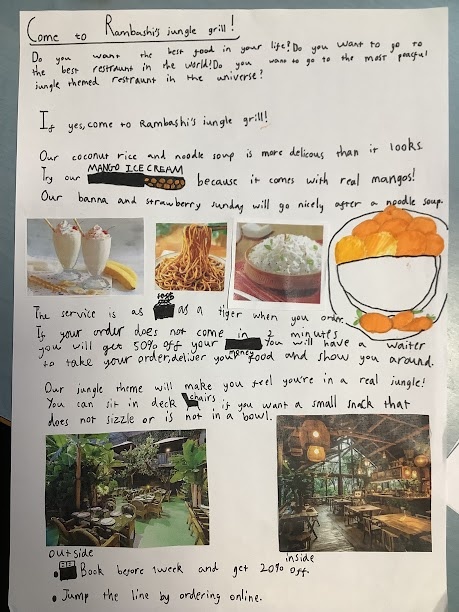 Come to Rambashi's jungle grill!
Do you want the best food in your life? Do you want to go to
the best restraunt in the world? Do you want to go to the most peaceful
jungle themed restraunt in the universe?
If yes, come to Rambashi's jungle grill!
Our coconut rice and noodle soup is more delicous than it looks.
MANGO ICE CREAM
Try our because it comes with real mangos!
Our banna and strawberry sunday will go nicely after a noodle soup.
The service is as as a tiger when you order.
If your order does not come in 2 minutes
you will get 50% off your money You will have a waiter
to take your order, deliver your food and show you around.
Our jungle theme will make you feel you're in a real jungle!
You can sit in deck chairs if you want a small snack that
does not sizzle or is not in a bowl.
outside
inside
Book before 1 week and get 20% off.
Jump the line by ordering online.